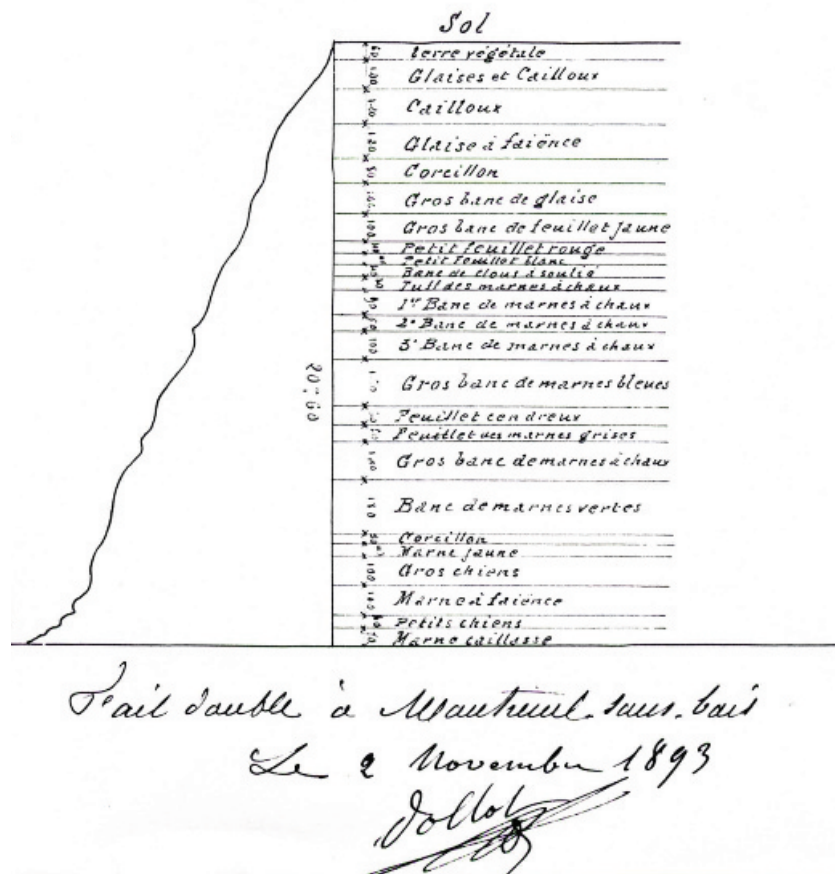 Sol
60 terre végétale
100 Glaises et Cailloux
120 Cailloux
120 Glaise à faïence
80 Corcillon
100 Gros banc de glaise
100 Gros banc de feuillet jaune
Petit feuillet rouge
Petit feuillet blanc
Banc de clous à soulie
Tuff des marnes à chaux
1er Banc de marnes à chaux
50 2e Banc de marnes à chaux
100 3e Banc de marnes à chaux
Gros banc de marnes bleues
20m,60
Feuillet cendreux
Feuillet des marnes grises
Gros banc de marnes à chaux
180 Banc de marnes vertes
Corcillon
Marne jaune
100 Gros chiens
100 Marne à faïence
Petits chiens
Marne caillasse
Fait double à Montreuil-sous-bois
Le 2 Novembre 1893
Dollot